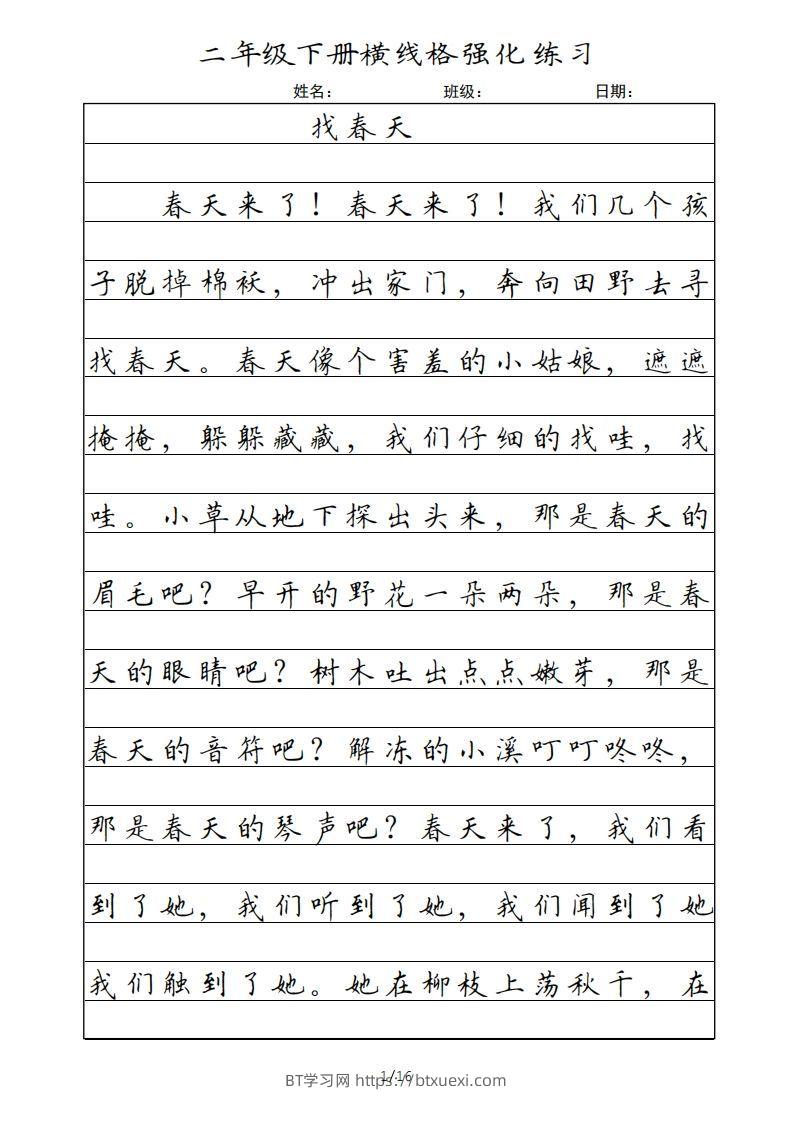 二年级下册横线格强化练习
姓名： 班级： 日期：
找春天
春天来了！春天来了！我们几个孩
子脱掉棉袄，冲出家门，奔向田野去寻
找春天。春天像个害羞的小姑娘，遮遮
掩掩，躲躲藏藏，我们仔细的找哇，找
哇。小草从地下探出头来，那是春天的
眉毛吧？早开的野花一朵两朵，那是春
天的眼睛吧？树木吐出点点嫩芽，那是
春天的音符吧？解冻的小溪叮叮咚咚，
那是春天的琴声吧？春天来了，我们看
到了她，我们听到了她，我们闻到了她
我们触到了她。她在柳枝上荡秋千，在
1/16
BT学习网 https://btxuexi.com